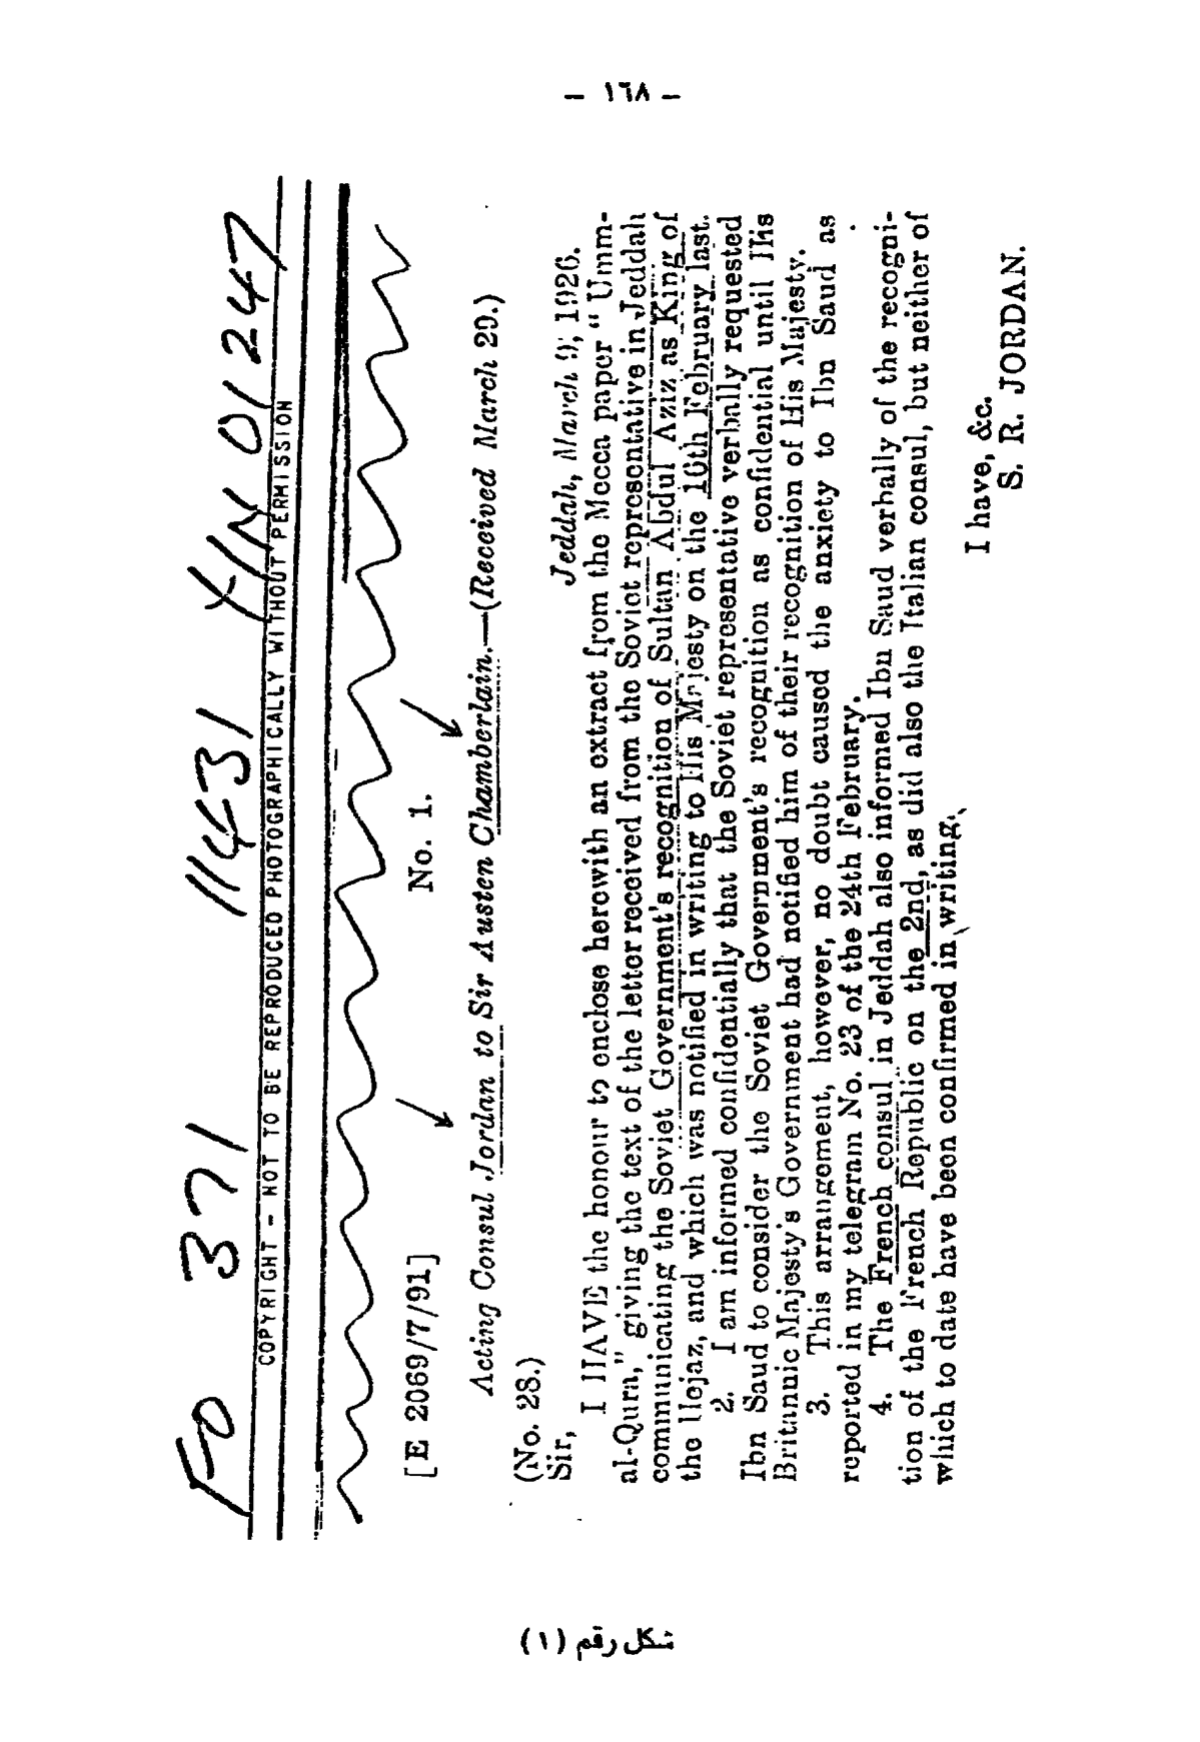 - ١٦٨ -
FO 371 11431 XN 01247
COPYRIGHT - NOT TO BE REPRODUCED PHOTOGRAPHICALLY WITHOUT PERMISSION
[E 2069/7/91] No. 1.
Acting Consul Jordan to Sir Austen Chamberlain.—(Received March 29.)
(No. 28.)
Sir, Jeddah, March 9, 1926.
I HAVE the honour to enclose herewith an extract from the Mecca paper "Umm-
al-Qura," giving the text of the letter received from the Soviet representative in Jeddah
communicating the Soviet Government's recognition of Sultan Abdul Aziz as King of
the Hejaz, and which was notified in writing to His Majesty on the 16th February last.
2. I am informed confidentially that the Soviet representative verbally requested
Ibn Saud to consider the Soviet Government's recognition as confidential until His
Britannic Majesty's Government had notified him of their recognition of His Majesty.
3. This arrangement, however, no doubt caused the anxiety to Ibn Saud as
reported in my telegram No. 23 of the 24th February.
4. The French consul in Jeddah also informed Ibn Saud verbally of the recogni-
tion of the French Republic on the 2nd, as did also the Italian consul, but neither of
which to date have been confirmed in writing.
I have, &c.
S. R. JORDAN.
شكل رقم (١)